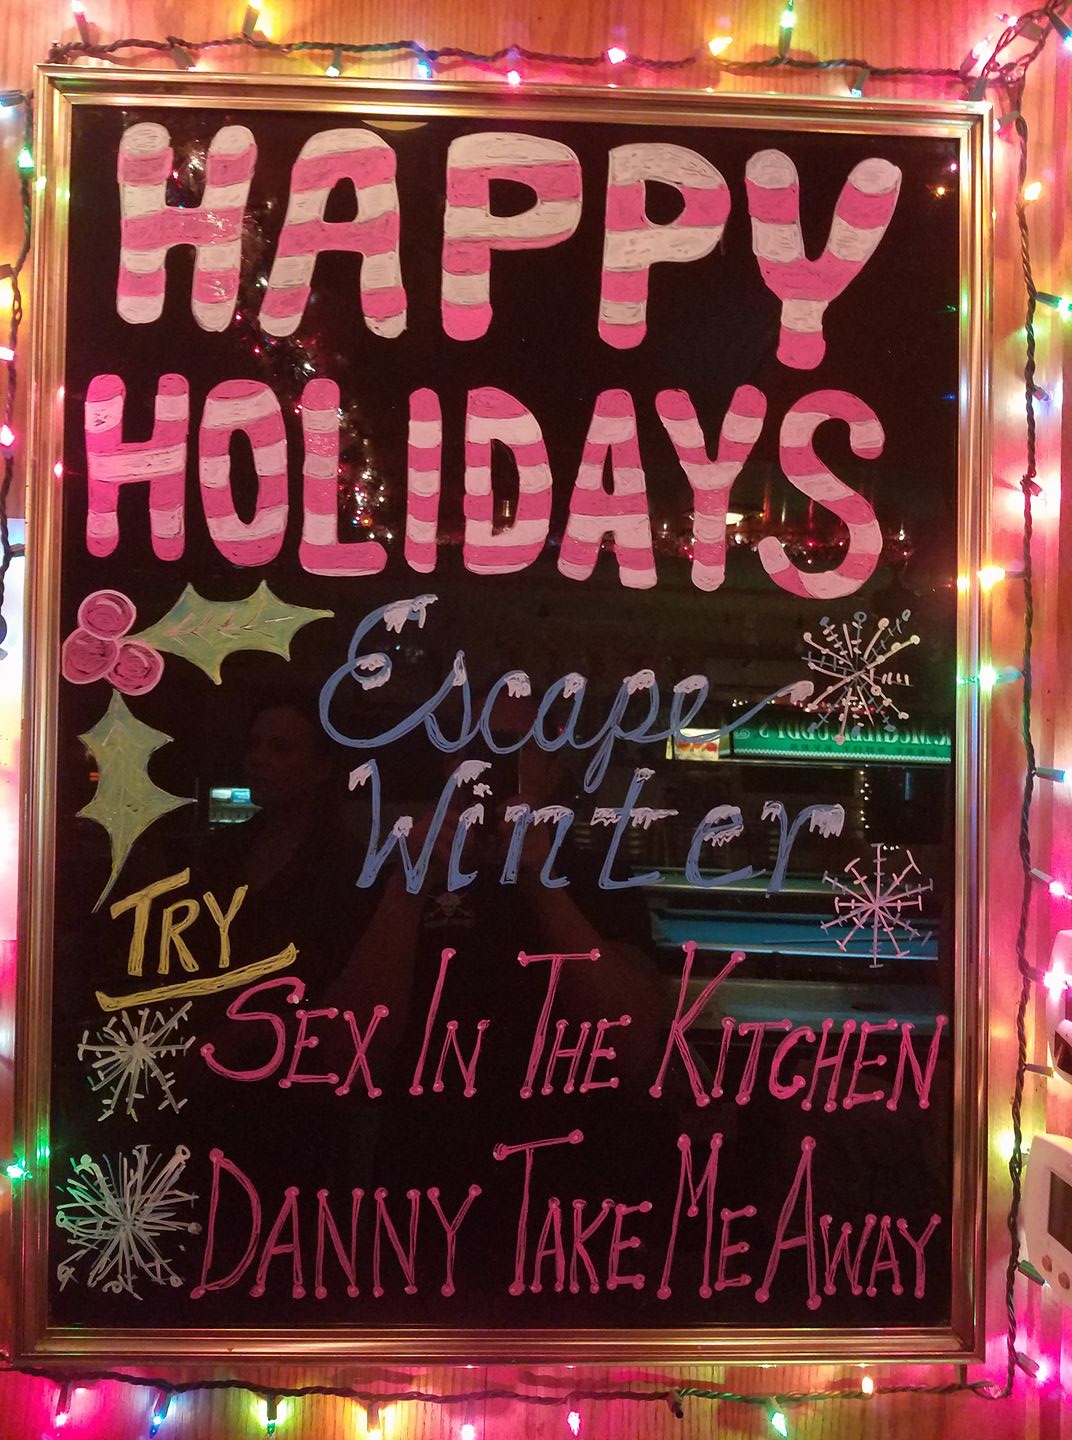 HAPPY
HOLIDAYS
Escape
Winter
TRY
SEX IN THE KITCHEN
DANNY TAKE ME AWAY